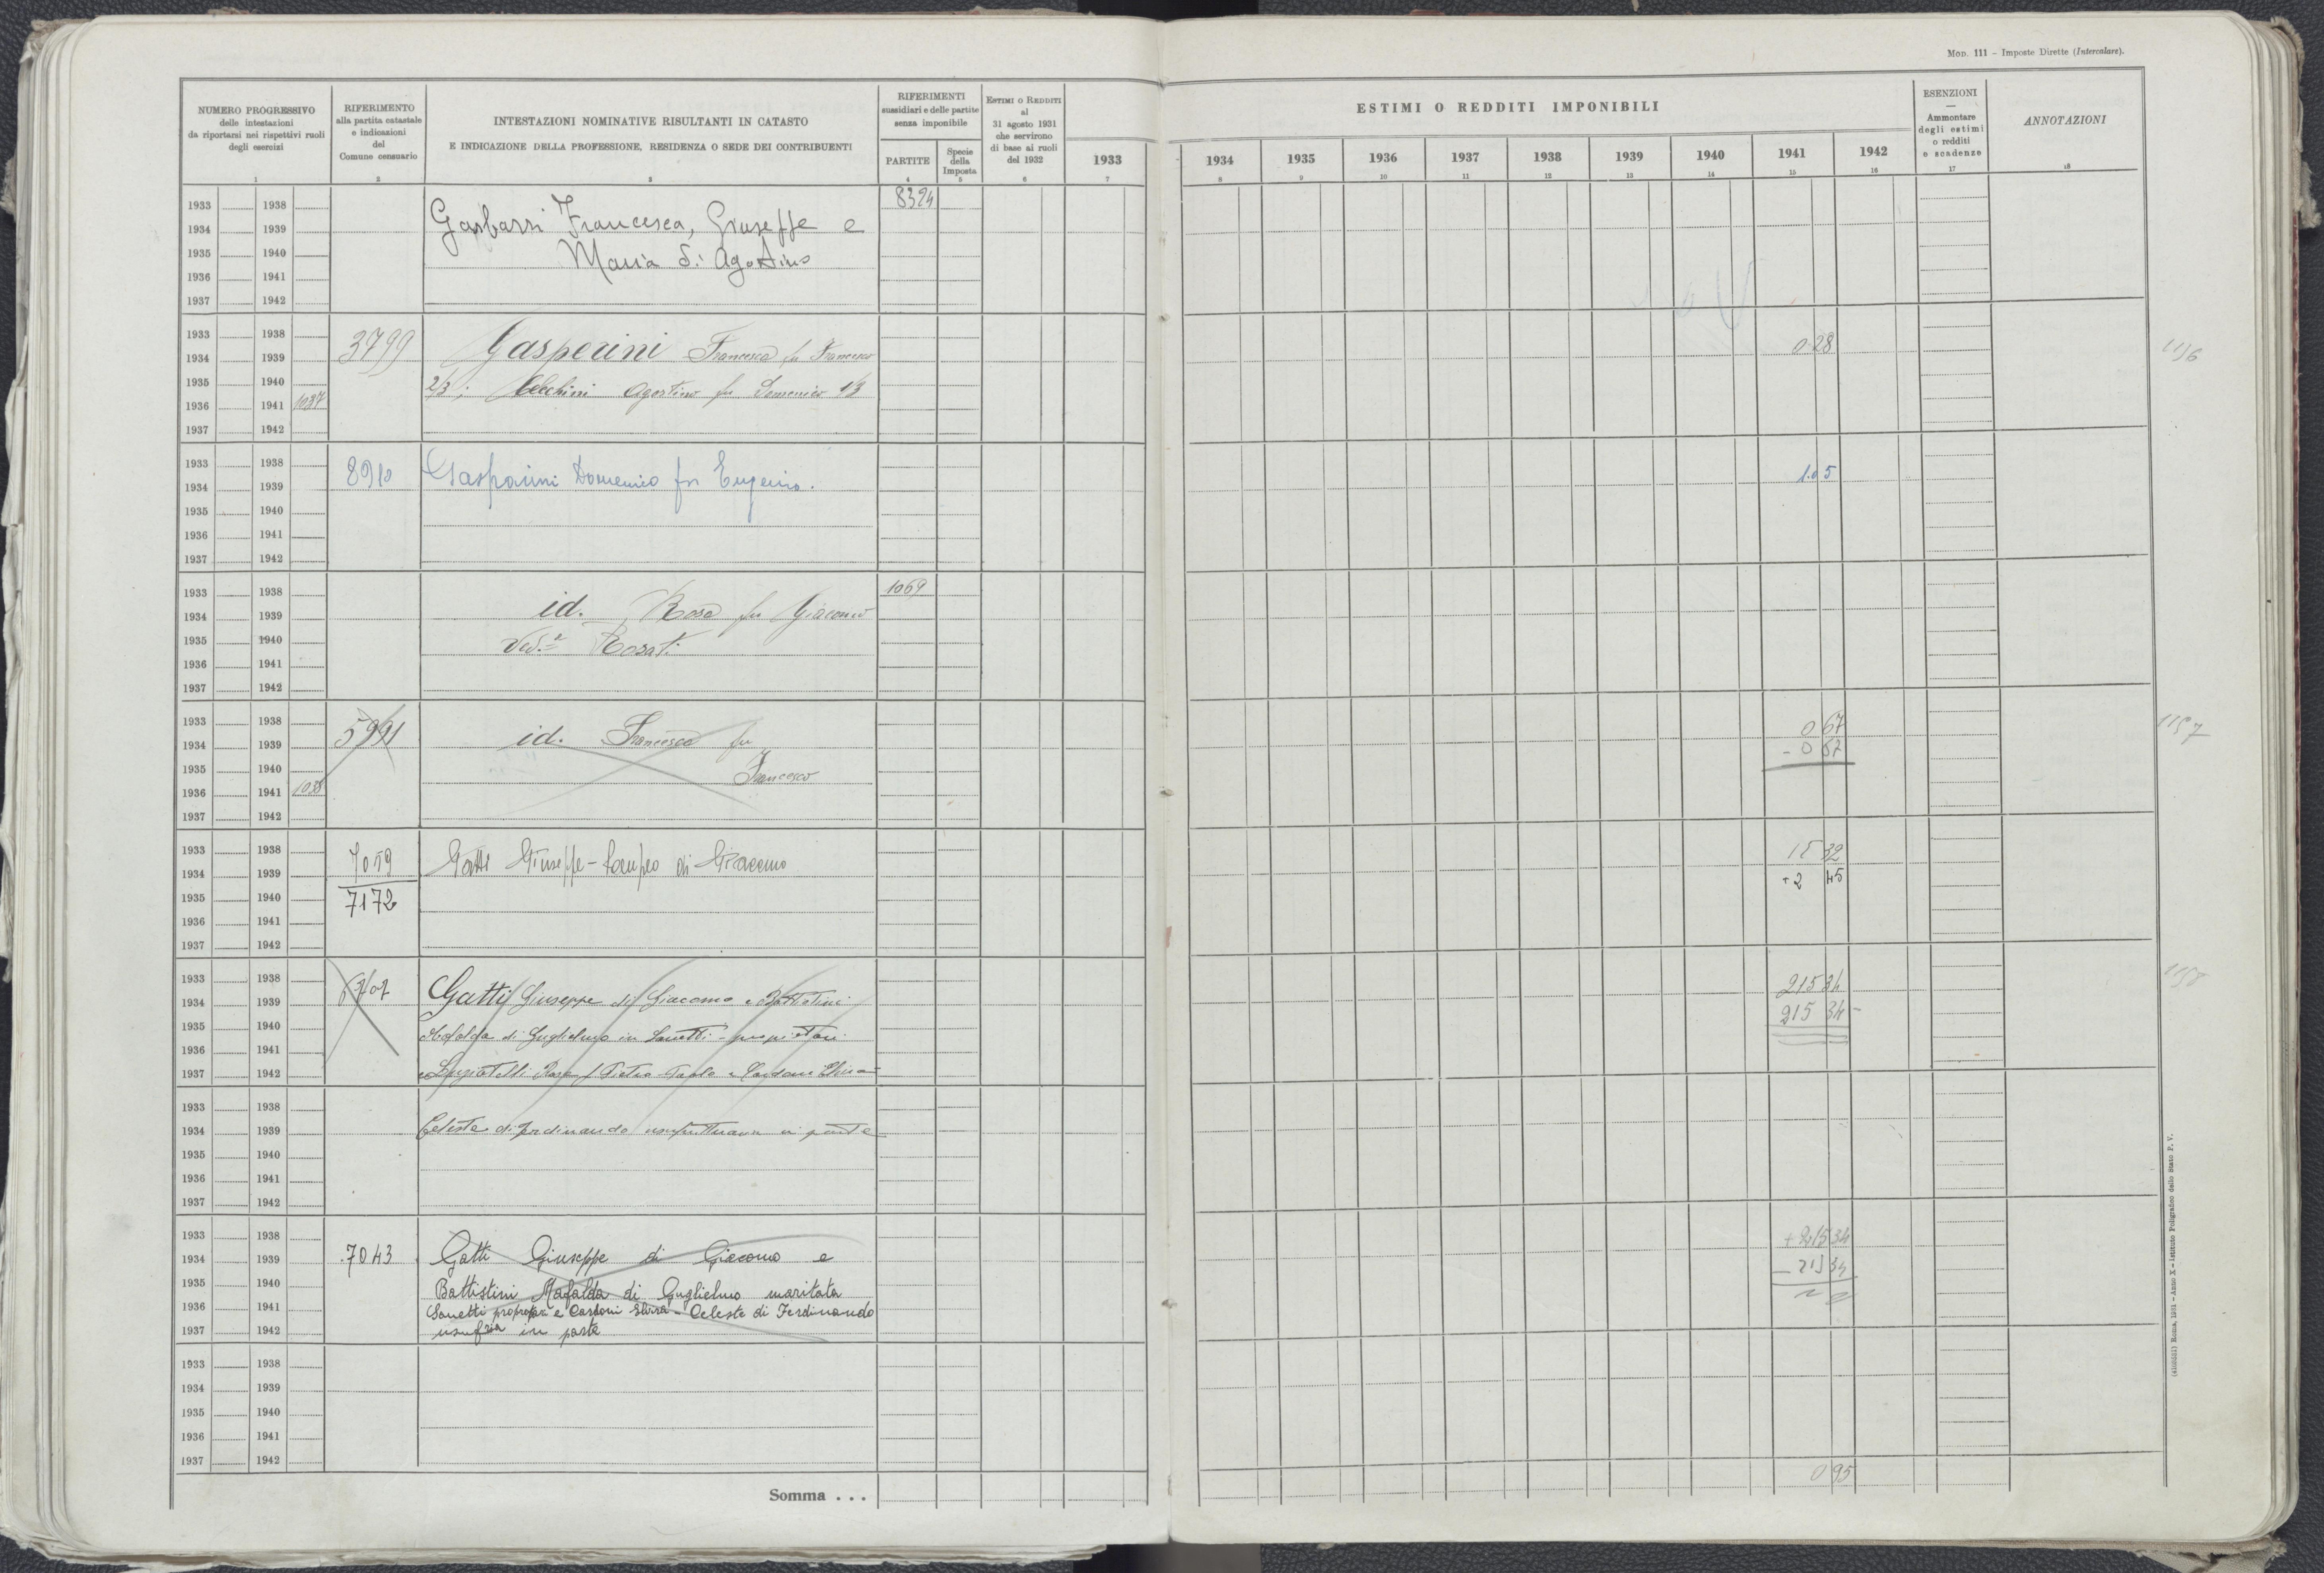 MOD. 111 - Imposte Dirette (Intercalare).
NUMERO PROGRESSIVO
delle intestazioni
da riportarsi nei rispettivi ruoli
degli esercizi
1
RIFERIMENTO
alla partita catastale
e indicazioni
del
Comune censuario
2
INTESTAZIONI NOMINATIVE RISULTANTI IN CATASTO
E INDICAZIONE DELLA PROFESSIONE, RESIDENZA O SEDE DEI CONTRIBUENTI
3
RIFERIMENTI
sussidiari e delle partite
senza imponibile
PARTITE
4
Specie
della
Imposta
5
ESTIMI O REDDITI
al
31 agosto 1931
che servirono
di base ai ruoli
del 1932
6
ESTIMI O REDDITI IMPONIBILI
1933 1934 1935 1936 1937 1938 1939 1940 1941 1942
7 8 9 10 11 12 13 14 15 16
ESENZIONI
—
Ammontare
degli estimi
o redditi
e scadenze
17
ANNOTAZIONI
18
1933 1938 8324
Gasbarri Francesca, Giuseppe e
1934 1939
1935 1940 Maria di Agostino
1936 1941
1937 1942
1933 1938
3799 Gasperini Francesca fu Francesco 0 28 1156
1934 1939
1935 1940 2/3; Cecchini Agostino fu Domenico 1/3
1936 1941 1037
1937 1942
1933 1938
8910 Gasparini Domenico fu Eugenio. 1.05
1934 1939
1935 1940
1936 1941
1937 1942
1933 1938 1069
1934 1939 id. Rosa fu Giacomo
1935 1940 Ved.a Rosati
1936 1941
1937 1942
1933 1938 0 67 1157
1934 1939 5991 id. Francesca fu - 0 67
1935 1940 Francesco
1936 1941 1038
1937 1942
1933 1938 7059 Gatti Giuseppe - di Giacomo 32
1934 1939 +2 45
1935 1940 7172
1936 1941
1937 1942
1933 1938 215 34 1158
1934 1939 Gatti Giuseppe di Giacomo e Battistini 215 34 -
1935 1940 Mafalda di Guglielmo in Sanetti - proprietari
1936 1941
1937 1942 Rosa f Pietro Paolo e Cardoni Elvira
1933 1938
1934 1939 Celeste di Ferdinando usufruttuaria in parte
1935 1940
1936 1941
1937 1942
1933 1938 + 215 34
1934 1939 7043 Gatti Giuseppe di Giacomo e - 215 34
1935 1940 Battistini Mafalda di Guglielmo maritata
1936 1941 Sanetti e Cardoni Elvira - Celeste di Ferdinando
1937 1942 in parte
1933 1938
1934 1939
1935 1940
1936 1941
1937 1942
Somma . . . 0 95
Roma, 1931 - Anno X - Istituto Poligrafico dello Stato P. V.